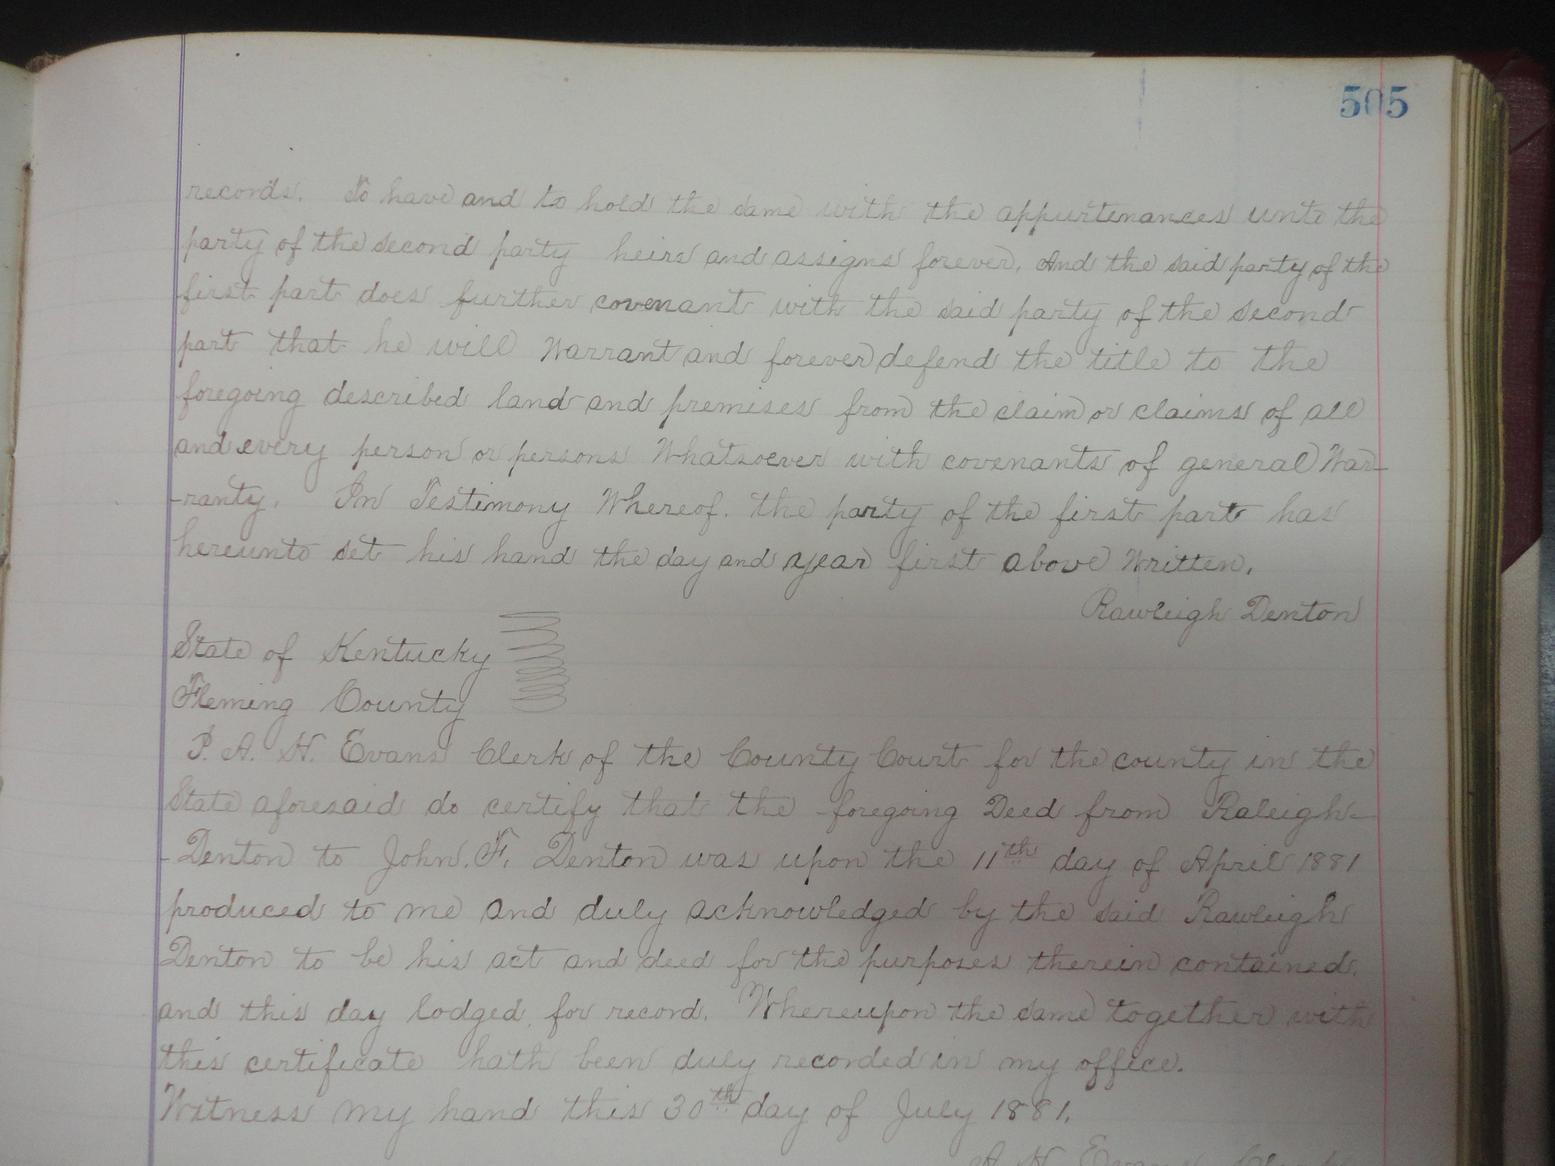 505
records. To have and to hold the same with the appurtenances unto the
party of the second party heirs and assigns forever. And the said party of the
first part does further covenant with the said party of the second
part that he will Warrant and forever defend the title to the
foregoing described land and premises from the claim or claims of all
and every person or persons Whatsoever with covenants of general War-
-ranty. In Testimony Whereof. the party of the first part has
hereunto set his hand the day and year first above Written.
Rawleigh Denton
State of Kentucky
Fleming County
I. A. H. Evans Clerk of the County Court for the county in the
State aforesaid do certify that the foregoing Deed from Raleigh-
-Denton to John. F. Denton was upon the 11th day of April 1881
produced to me and duly acknowledged by the said Rawleigh
Denton to be his act and deed for the purposes therein contained.
and this day lodged for record. Whereupon the same together with
this certificate hath been duly recorded in my office.
Witness my hand this 30th day of July 1881.
A. H. Evans Clerk